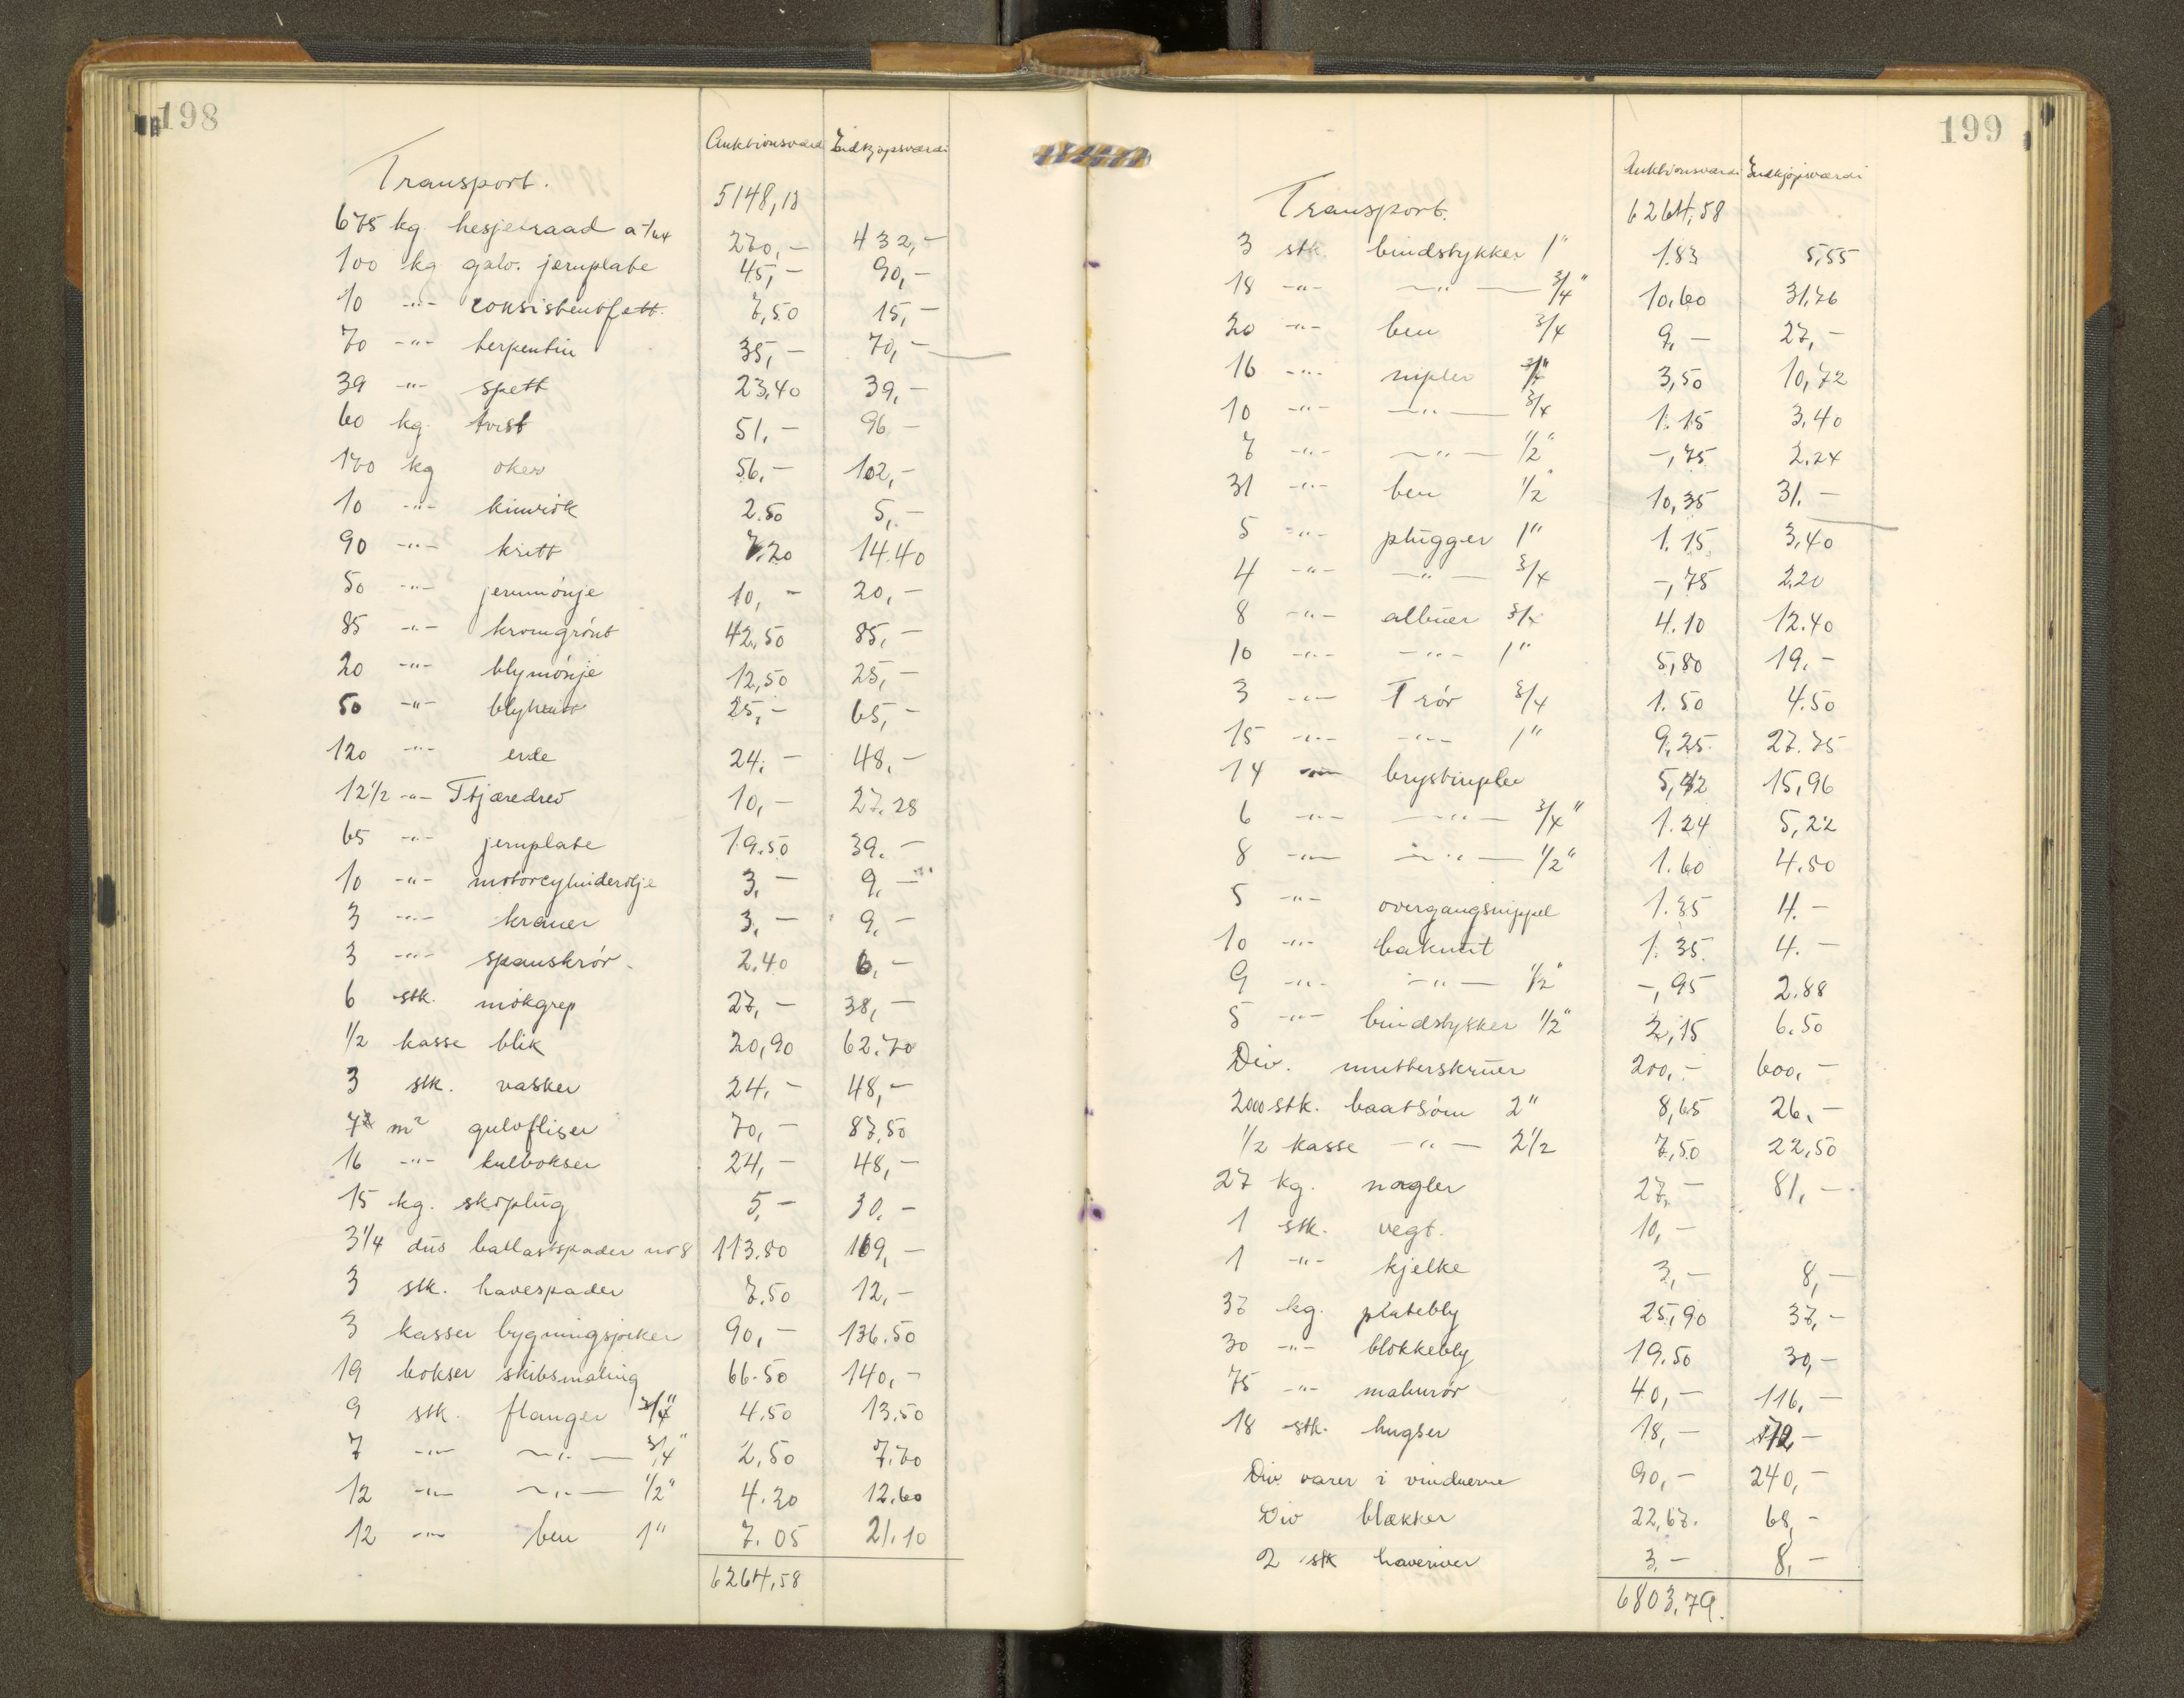 198
Auktionsværdi Indkjøpsværdi
Transport. 5148,13
675 kg. hesjetraad a -/64 270,- 432,-
100 kg galv. jernplate 45,- 90,-
10 -"- consistentfett. 7,50 15,-
70 -"- terpentin 35,- 70,-
39 -"- spett 23,40 39,-
60 kg. tvist 51,- 96,-
170 kg oker 56,- 102,-
10 -"- kimrök 2.50 5,-
90 -"- kritt 7.20 14.40
50 -"- jernmönje 10,- 20,-
85 -"- kromgrönt 42,50 85,-
20 -"- blymönje 12,50 25,-
50 -"- blyhvitt 25,- 65,-
120 -"- erde 24,- 48,-
12 1/2 -"- Tjæredrev 10,- 27.28
65 -"- jernplate 19.50 39,-
10 -"- motorcylinderölje 3,- 9,-
3 -"- kraner 3,- 9,-
3 -"- spanskrör 2.40 6,-
6 stk. mökgrep 27,- 38,-
1/2 kasse blik 20,90 62.70
3 stk. vasker 24,- 48,-
7 m² gulvfliser 70,- 87,50
16 -"- hulbokser 24,- 48,-
15 kg. skoplug 5,- 30,-
3 1/4 dus ballastspader nr 8 113.80 169,-
3 stk. havespader 7.50 12,-
3 kasser bygningspeker 90,- 136.50
19 bokser skibsmaling 66.50 140,-
9 stk. flanger 3/4" 4.50 13.50
7 -"- -"- 3/4" 2,50 7.70
12 -"- -"- 1/2" 4.20 12.60
12 -"- ben 1" 7.05 21.10
6264,58
199
Auktionsværdi Indkjøpsværdi
Transport. 6264,58
3 stk. bindstykker 1" 1.83 5,55
18 -"- -"- 3/4" 10,60 31,76
20 -"- ben 3/4 9,- 27,-
16 -"- nipler 1" 3,50 10,72
10 -"- -"- 3/4 1.15 3,40
7 -"- -"- 1/2" -,75 2.24
31 -"- ben 1/2" 10,35 31.-
5 -"- plugger 1" 1.15 3,40
4 -"- -"- 3/4 -,75 2.20
8 -"- albuer 3/4 4.10 12.40
10 -"- -"- 1" 5,80 19,-
3 -"- T rör 3/4 1.50 4.50
15 -"- -"- 1" 9,25 27.75
14 -"- brystnipler 5,42 15,96
6 -"- -"- 3/4" 1.24 5,22
8 -"- -"- 1/2" 1.60 4.50
5 -"- overgangsnippel 1.35 4.-
10 -"- bakmut 1.35 4.-
9 -"- -"- 1/2" -,95 2.88
5 -"- bindstykker 1/2" 2,15 6.50
Div. mutterskruer 200,- 600,-
2000 stk. baatsöm 2" 8,65 26,-
1/2 kasse -"- 2 1/2 7,50 22,50
27 kg. nagler 27,- 81,-
1 stk. vegt. 10,-
1 -"- kjelke 3,- 8,-
37 kg. platebly 25,90 37,-
30 -"- blokkebly 19.50 30,-
75 -"- mahurör 40,- 116,-
18 stk. hugser 18,- 72,-
Div. varer i vinduerne 90,- 240,-
Div blækker 22,67. 68,-
2 stk haveriver 3,- 8,-
6803,79.